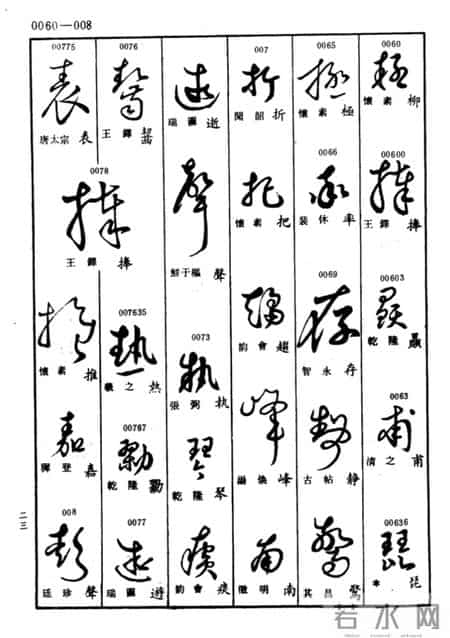 0060—008
0060
懷素 柳
00600
王鐸 捧
00603
乾隆 顯
0063
清之 甫
00636
琵
0065
懷素 極
0066
裴休 率
0069
智永 存
古帖 静
其昌 驚
007
閔韶 折
懷素 把
韵會 超
峰
徵明 南
瑞圖 逝
鮮于樞 聲
0073
張弼 执
乾隆 琴
韵會 痕
0076
王鐸
007635
羲之 热
00767
乾隆 勳
0077
瑞圖 遊
00775
唐太宗 表
0078
王鐸 捧
懷素 推
嘉
008
廷珍 聲
二三
若水网